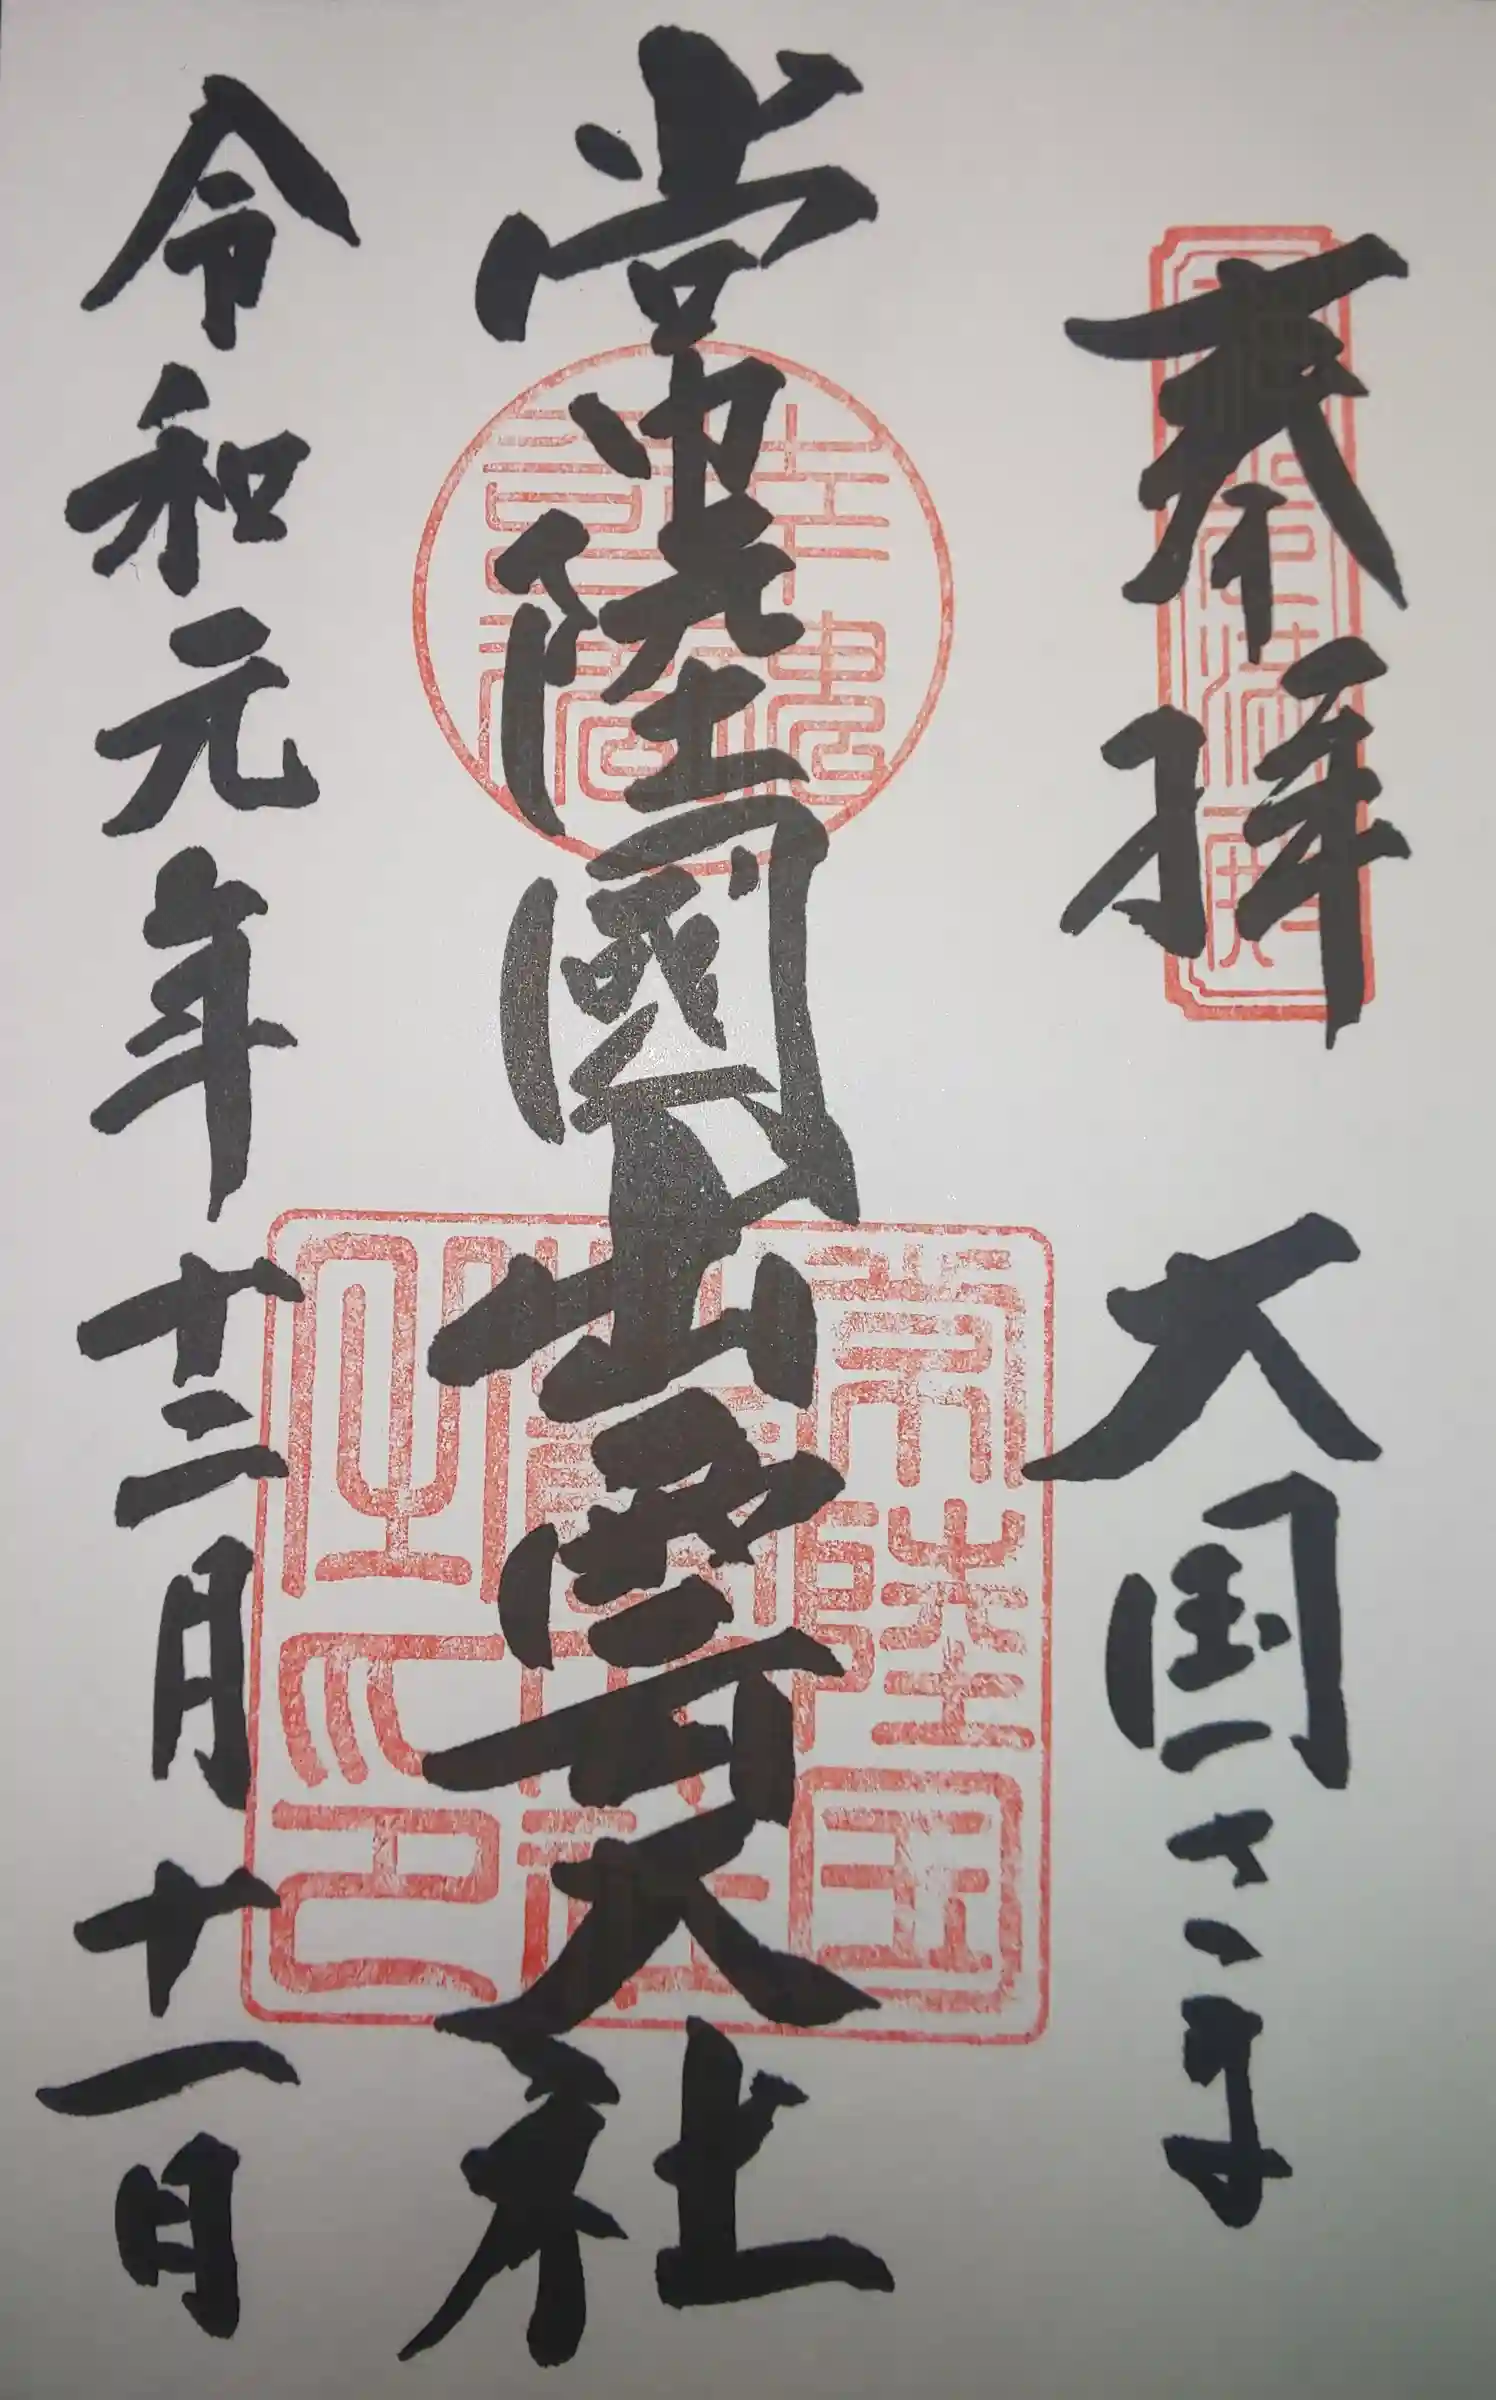 奉拝 大国さま
常陸國出雲大社
令和元年十二月十一日
幸魂奇魂
常陸国出雲大社之印